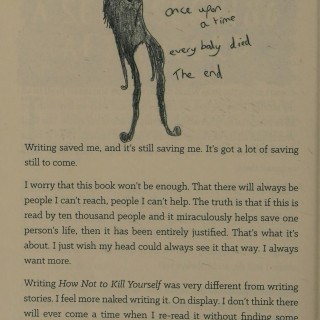 once upon
a time
everybody died
The end
Writing saved me, and it's still saving me. It's got a lot of saving
still to come.
I worry that this book won't be enough. That there will always be
people I can't reach, people I can't help. The truth is that if this is
read by ten thousand people and it miraculously helps save one
person's life, then it has been entirely justified. That's what it's
about. I just wish my head could always see it that way. I always
want more.
Writing How Not to Kill Yourself was very different from writing
stories. I feel more naked writing it. On display. I don't think there
will ever come a time when I re-read it without finding some